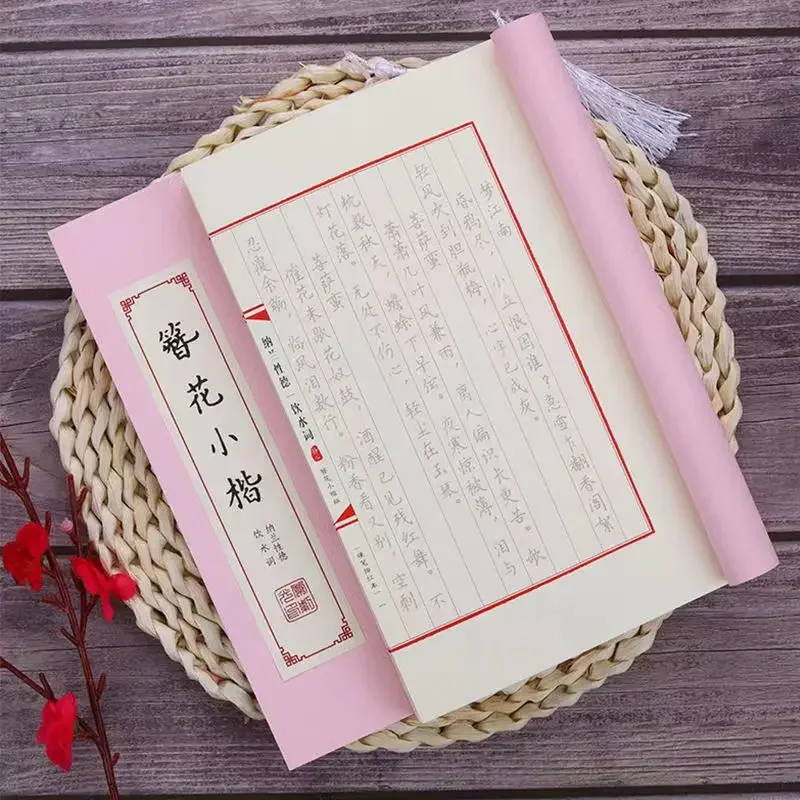 梦江南
昏鸦尽，小立恨因谁？急雪乍翻香阁絮
轻风吹到胆瓶梅，心字已成灰。
菩萨蛮
萧萧几叶风兼雨，离人偏识长更苦。欹
枕数秋天，蟾蜍下早弦。夜寒惊被薄，泪与
灯花落。无处不伤心，轻尘在玉琴。
菩萨蛮
催花未歇花奴鼓，酒醒已见残红舞。不
忍覆余觞，临风泪数行。粉香看又别，空剩
纳兰性德｜饮水词
簪花小楷版
硬笔描红本
一
簪花小楷
纳兰性德
饮水词